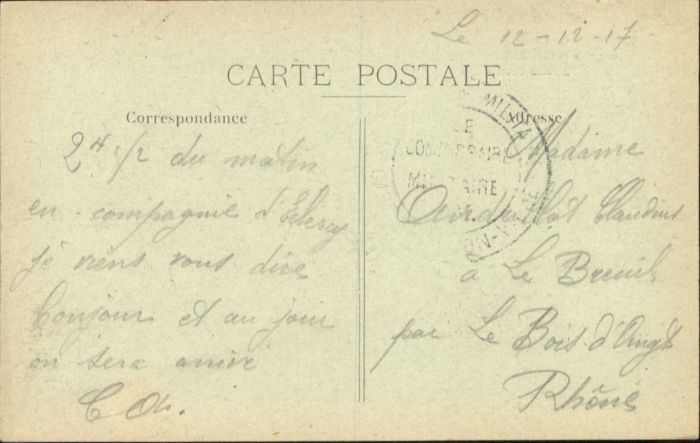 Le 12-12-17
CARTE POSTALE
Correspondance
2 H 1/2 du matin
en compagnie d'
je viens vous dire
bonjour et au jour
on sera arrivé
Adresse
Madame
Claudius
a Le Breuil
par Le Bois d'Oingt
Rhône
LE
COMMISSAIRE
MILITAIRE